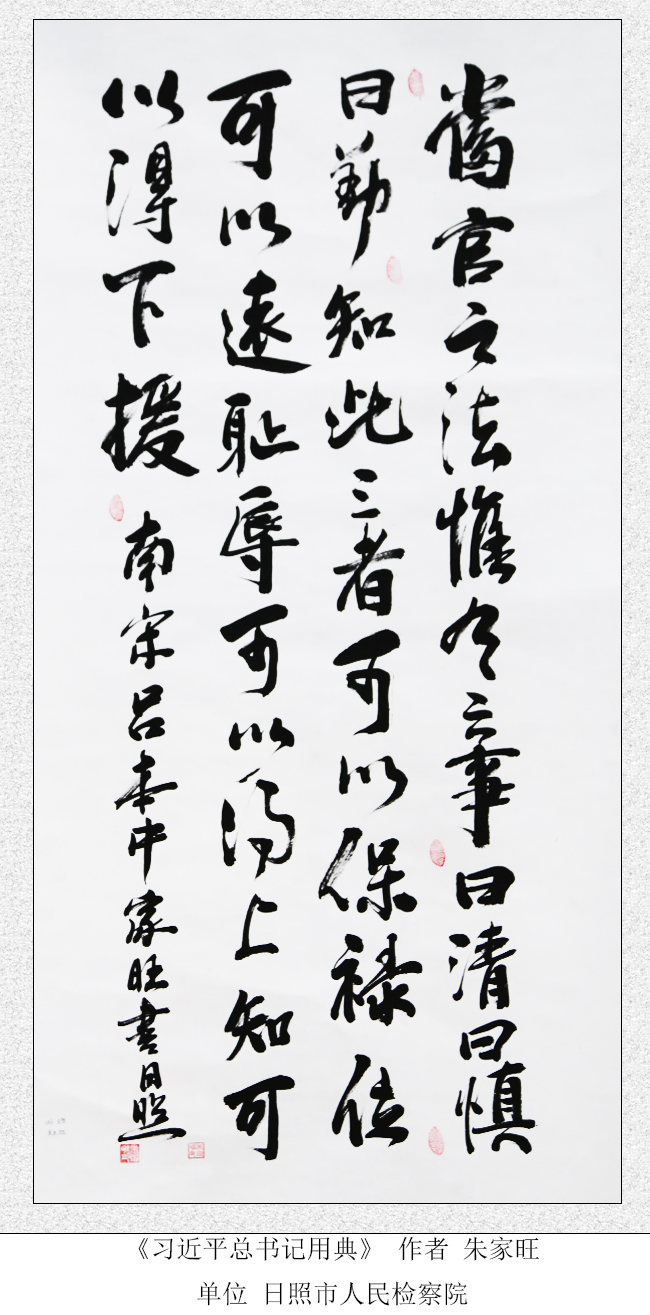 當官之法惟有三事曰清曰慎
曰勤知此三者可以保禄位
可以遠耻辱可以得上知可
以得下援 南宋吕本中家旺書日照
《习近平总书记用典》 作者 朱家旺
单位 日照市人民检察院